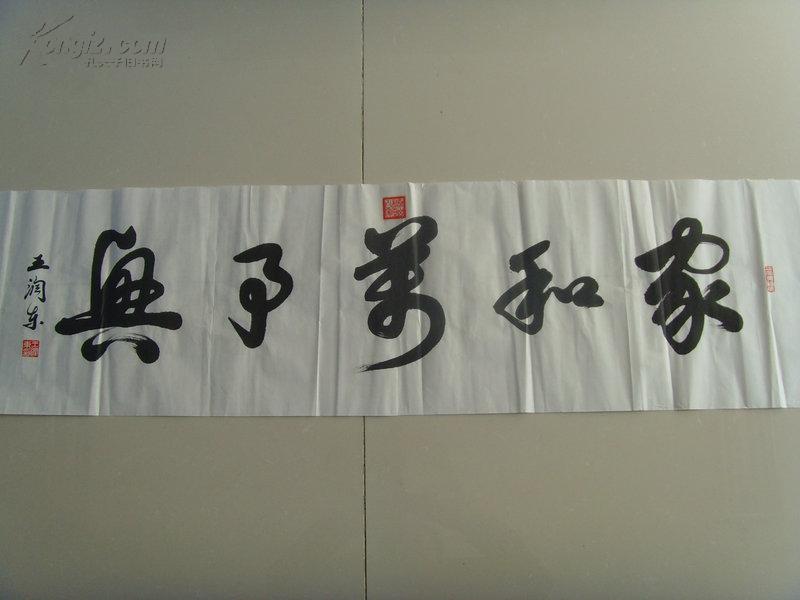 家和萬事興
王润东
Kongfz.com
孔夫子旧书网